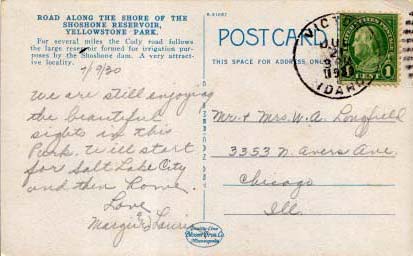 ROAD ALONG THE SHORE OF THE
SHOSHONE RESERVOIR,
YELLOWSTONE PARK.
For several miles the Cody road follows
the large reservoir formed for irrigation pur-
poses by the Shoshone dam. A very attrac-
tive locality.
7/9/30
We are still enjoying
the beautiful
sights in this
Park. Will start
for Salt Lake City
and then home.
Love
Margie & Lauris
POST CARD
THIS SPACE FOR ADDRESS ONLY
VICTOR
IDAHO
1 CENT 1
Mr. & Mrs. W. A. Longfield
3353 N. Avers Ave.
Chicago
Ill.